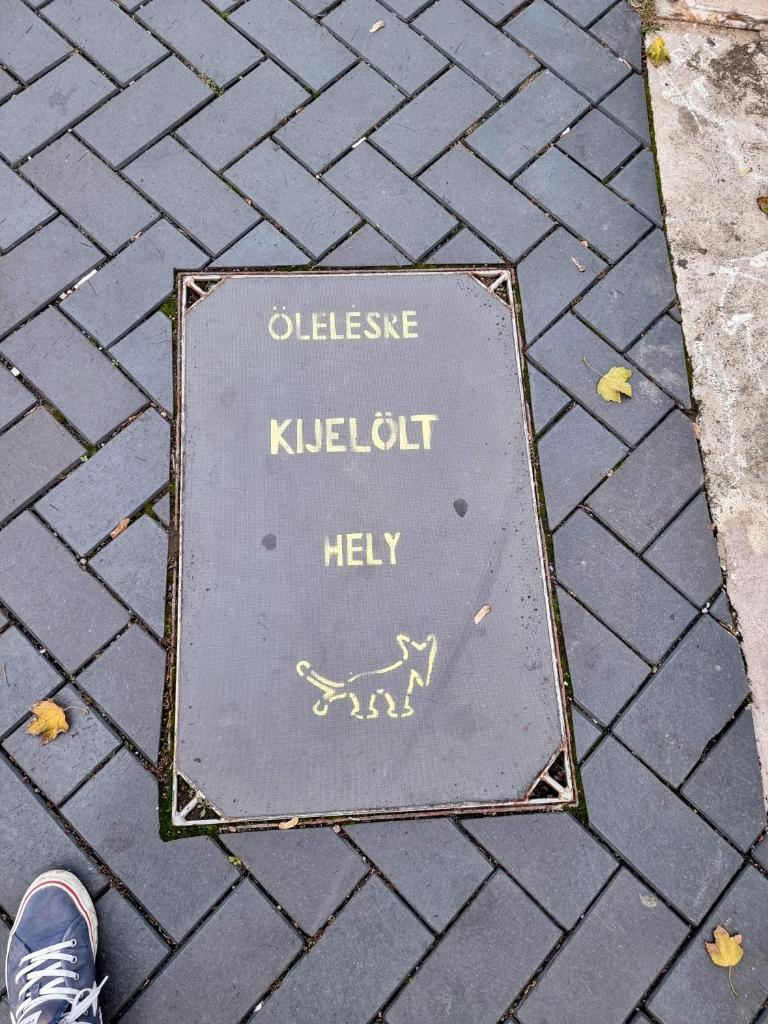 ÖLELÉSRE
KIJELÖLT
HELY